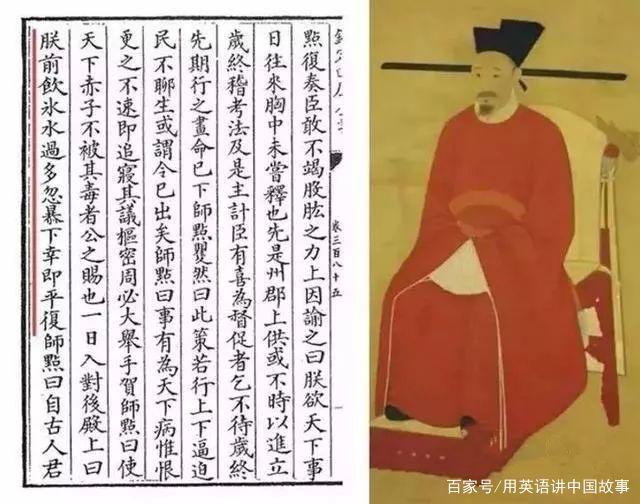 卷三百八十五
點復奏臣敢不竭股肱之力上因諭之曰朕欲天下事
日往來胸中未嘗釋也先是州郡上供或不時以進立
歲終稽考法及是主計臣有喜為督促者乞不待歲終
先期行之畫命已下師點矍然曰此策若行上下逼迫
民不聊生或謂令已出矣師點曰事有為天下病惟恨
更之不速即追寢其議樞密周必大舉手賀師點曰使
天下赤子不被其毒者公之賜也一日入對後殿上曰
朕前飲氷水過多忽暴下幸即平復師點曰自古人君
百家号/用英语讲中国故事